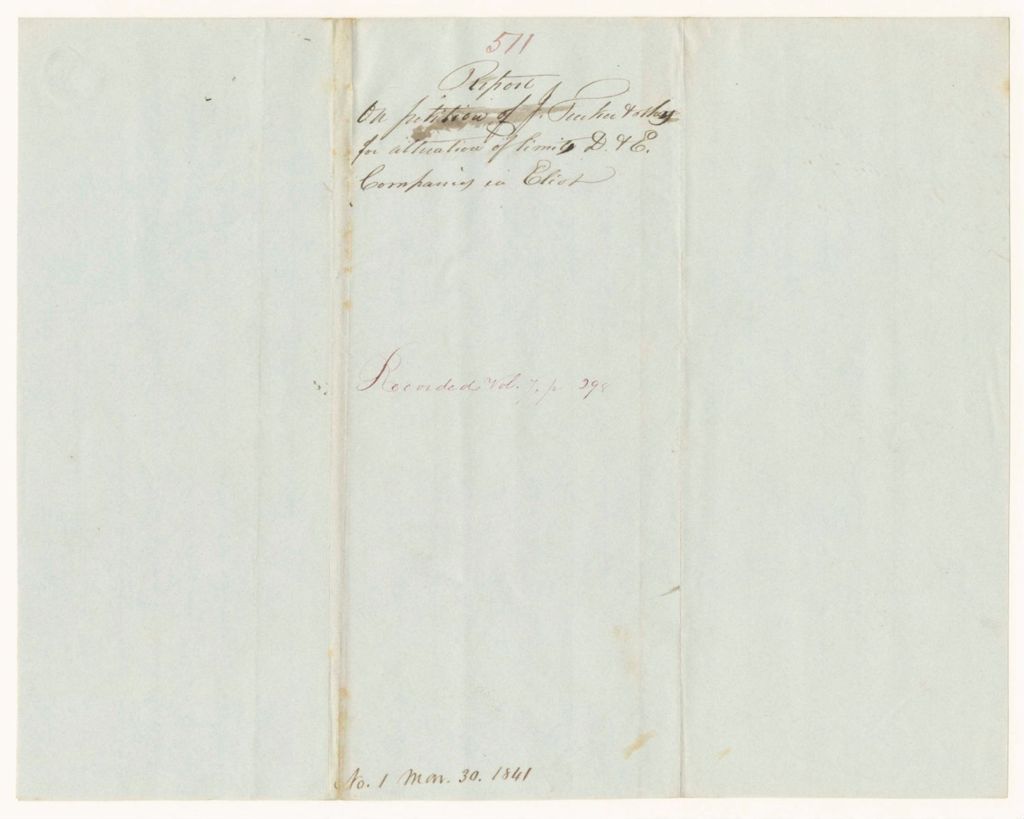 511
Report
On petition of J. & others
for alteration of limits D. & E.
Companies in Eliot
Recorded Vol. 7, p 298
No. 1 Mar. 30. 1841